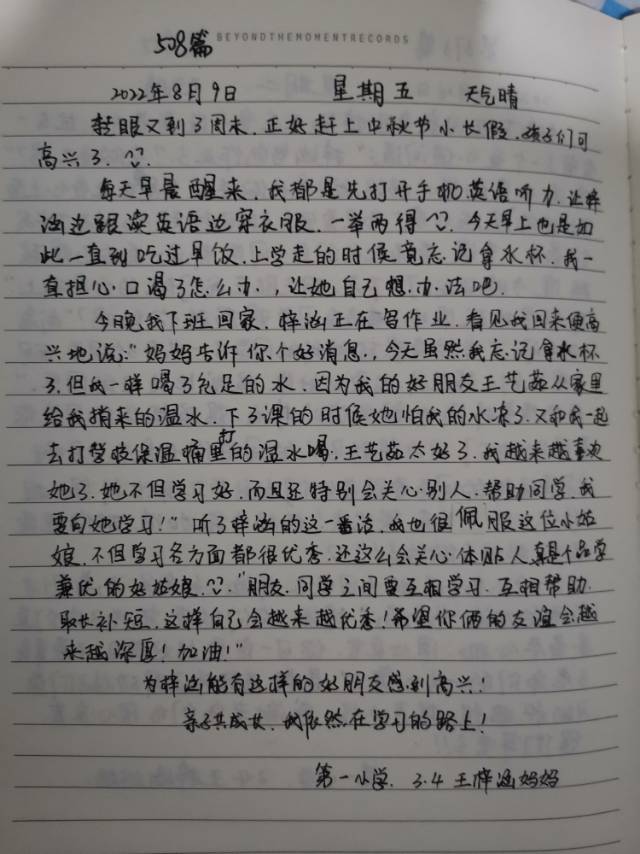 508篇 BEYONDTHEMOMENTRECORDS
2022年8月9日 星期五 天气晴
转眼又到了周末.正好赶上中秋节小长假.孩子们可
高兴了.^^.
每天早晨醒来.我都是先打开手机英语听力.让梓
涵边跟读英语边穿衣服.一举两得^^.今天早上也是如
此一直到吃过早饭.上学走的时候竟忘记拿水杯.我一
直担心口渴了怎么办.,让她自己想办法吧.
今晚我下班回家.梓涵正在写作业.看见我回来便高
兴地说:"妈妈告诉你个好消息.,今天虽然我忘记拿水杯
了.但我一样喝了充足的水.因为我的好朋友王艺茹从家里
给我捎来的温水.下了课的时候她怕我的水凉了.又和我一起
去打学校保温桶里打的温水喝.王艺茹太好了.我越来越喜欢
她了.她不但学习好.而且还特别会关心别人.帮助同学.我
要向她学习!"听了梓涵的这一番话.我也很佩服这位小姑
娘.不但学习各方面都很优秀.还这么会关心体贴人真是个品学
兼优的好姑娘.^^."朋友.同学之间要互相学习.互相帮助.
取长补短.这样自己会越来越优秀!希望你俩的友谊会越
来越深厚!加油!"
为梓涵能有这样的好朋友感到高兴!
亲子共成长.我依然在学习的路上!
第一小学.3.4王梓涵妈妈